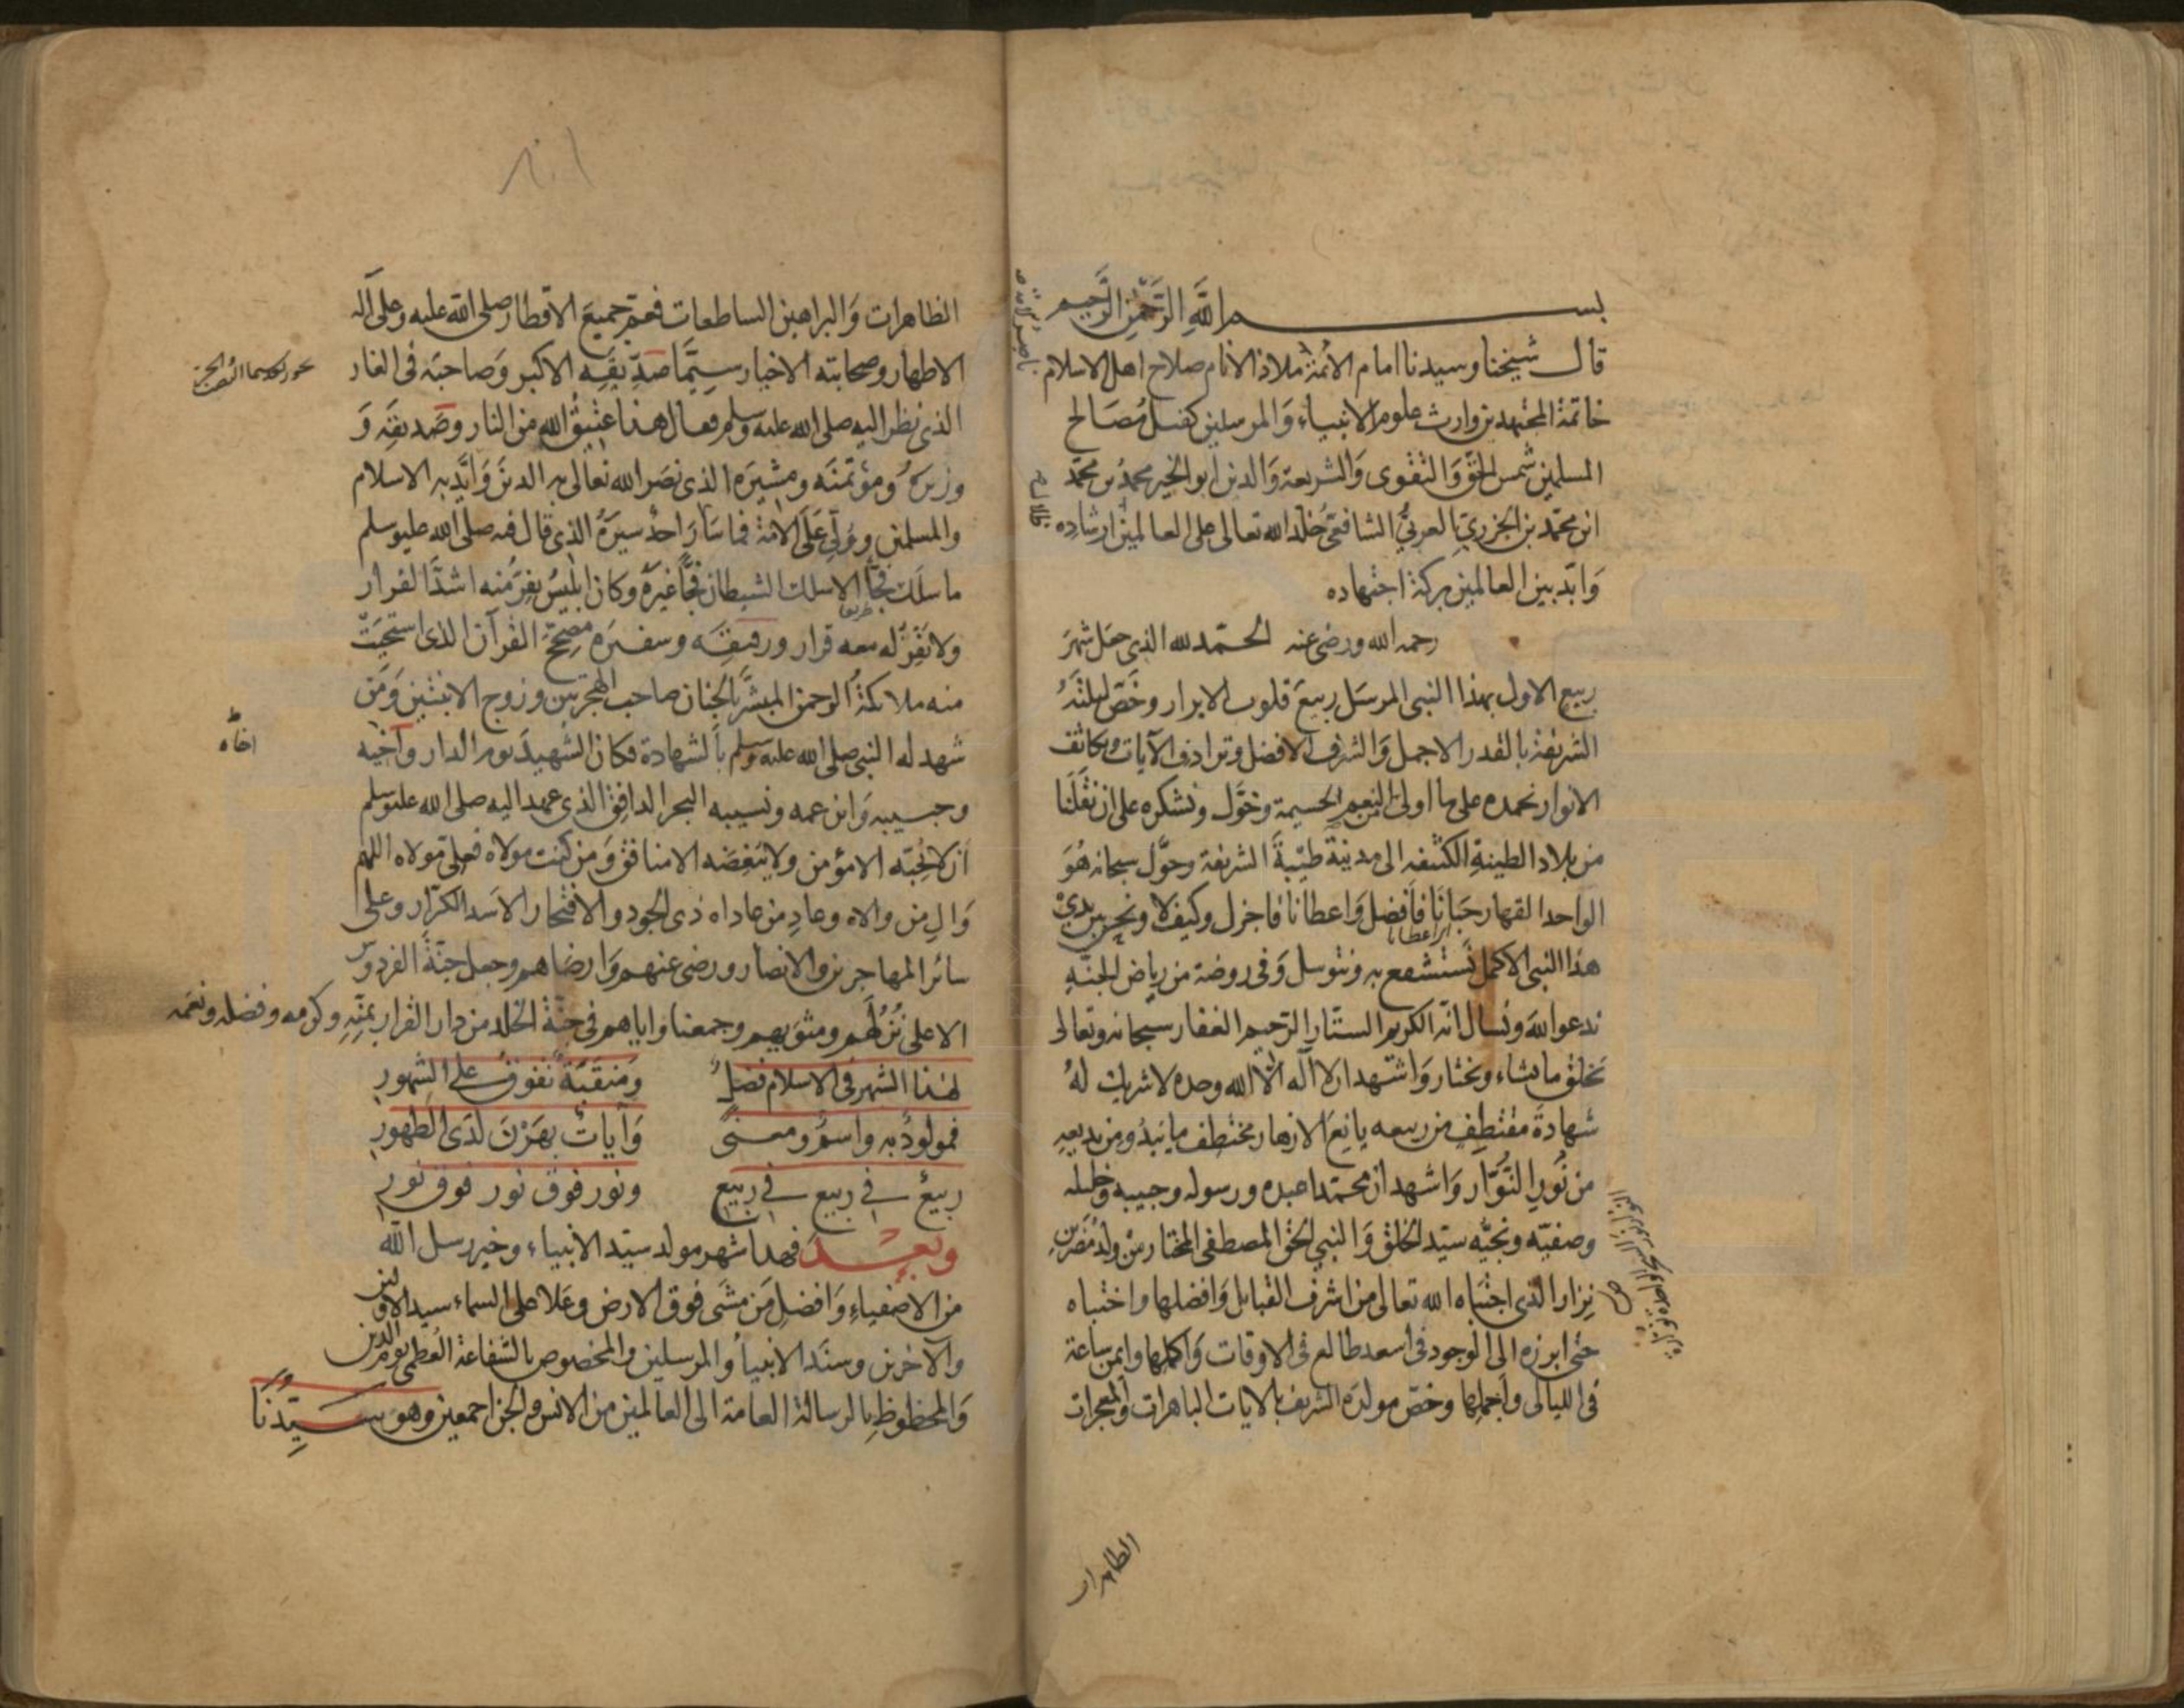 بسم الله الرحمن الرحيم
قال شيخنا وسيدنا امام الائمة ملاذ الانام صلاح اهل الاسلام
خاتمة المجتهدين وارث علوم الانبياء والمرسلين كفيل مصالح
المسلمين شمس الحق والتقوى والشريعة والدين ابو الخير محمد بن محمد
ابن محمد بن الجزري العربي الشافعي خلد الله تعالى على العالمين ارشاده
وابد بين العالمين بركة اجتهاده
رحمه الله ورضي عنه الحمد لله الذي جعل شهر
ربيع الاول بهذا النبي المرسل ربيع قلوب الابرار وخص ليلته
الشريفة بالقدر الاجمل والشرف الافضل وترادف الآيات وتكاثف
الانوار نحمده على ما اولى من النعم الجسيمة وخول ونشكره على ان نقلنا
من بلاد الطينة الكثيفة الى مدينة طيبة الشريفة وحول سبحانه هو
الواحد القهار حبانا فافضل واعطانا فاجزل وكيف لا ونحن بين يدي
هذا النبي الاكمل نستشفع به ونتوسل وفي روضة من رياض الجنة
ندعو الله ونسال انه الكريم الستار الرحيم الغفار سبحانه وتعالى
يخلق ما يشاء ويختار واشهد ان لا اله الا الله وحده لا شريك له
شهادة مقتطف من ربيعه يانع الازهار مختطف ما يبدو من بديعه
من نور النوار واشهد ان محمدا عبده ورسوله وحبيبه وخليله
وصفيه ونجيه سيد الخلق والنبي الحق المصطفى المختار من ولد مضر بن
نزار الذي اجتباه الله تعالى من اشرف القبايل وافضلها واختباه
حتى ابرزه الى الوجود في اسعد طالع في الاوقات واكملها وايمن ساعة
في الليالي واجملها وخص مولده الشريف بالايات الباهرات والمعجزات
الظاهرات
الظاهرات والبراهين الساطعات فعم جميع الاقطار صلى الله عليه وعلى آله
الاطهار وصحابته الاخيار سيما صديقه الاكبر وصاحبه في الغار
الذي نظر اليه صلى الله عليه وسلم فقال هذا عتيق الله من النار وصديقه و
وزيره ومؤتمنه ومشيره الذي نصر الله تعالى به الدين وايد به الاسلام
والمسلمين وولي على الامة فما سار احد سيره الذي قال فيه صلى الله عليه وسلم
ما سلك فجا الا سلك الشيطان فجا غيره وكان ابليس يفر منه اشد الفرار
ولا يقر له معه قرار ورفيقه وسفيره مصحح القرآن الذي استحيت
منه ملائكة الرحمن المبشر بالجنان صاحب الهجرتين وزوج الابنتين ومن
شهد له النبي صلى الله عليه وسلم بالشهادة فكان الشهيد يوم الدار واخيه
اخاه
وحبيبه وابن عمه ونسيبه البحر الدافق الذي عهد اليه صلى الله عليه وسلم
ان لا يحبه الا مؤمن ولا يبغضه الا منافق ومن كنت مولاه فعلي مولاه اللهم
وال من والاه وعاد من عاداه ذي الجود والافتخار الاسد الكرار وعلى
سائر المهاجرين والانصار ورضي عنهم وارضاهم وجعل جنة الفردوس
الاعلى نزلهم ومثويهم وجمعنا واياهم في جنة الخلد من دار القرار بمنه وكرمه وفضله ونعمه
لهذا الشهر في الاسلام فضل ومنقبة تفوق على الشهور
فمولود به واسم ومعنى وآيات بهرن لدى الظهور
ربيع في ربيع في ربيع ونور فوق نور فوق نور
وبعد فهذا شهر مولد سيد الانبياء وخير رسل الله
من الاصفياء وافضل من مشى فوق الارض وعلا على السماء سيد الاولين
والآخرين وسند الانبياء والمرسلين والمخصوص بالشفاعة العظمى يوم الدين
والمحظوظ بالرسالة العامة الى العالمين من الانس والجن اجمعين وهو سيدنا